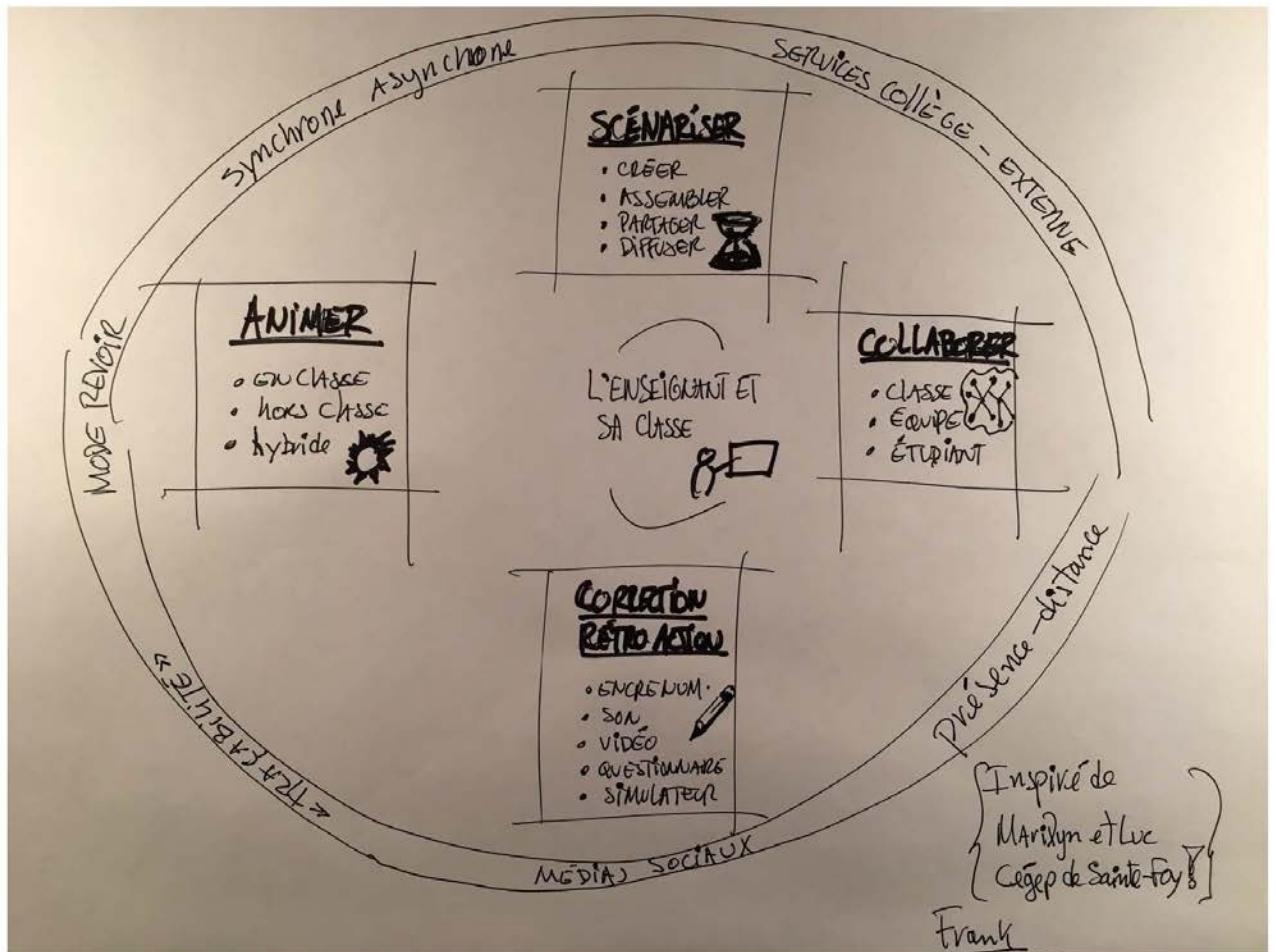 Synchrone Asynchrone
SERVICES COLLÈGE - EXTERNE
SCÉNARISER
• CRÉER
• ASSEMBLER
• PARTAGER
• DIFFUSER
MODE REVOIR
ANIMER
• EN CLASSE
• hors classe
• hybride
L'ENSEIGNANT ET
SA CLASSE
COLLABORER
• CLASSE
• ÉQUIPE
• ÉTUDIANT
CORRECTION
RÉTROACTION
• ENCRE NUM.
• SON
• VIDÉO
• QUESTIONNAIRE
• SIMULATEUR
présence-distance
« TRAÇABILITÉ »
MÉDIAS SOCIAUX
Inspiré de
Marilyn et Luc
Cégep de Sainte-Foy!
Frank